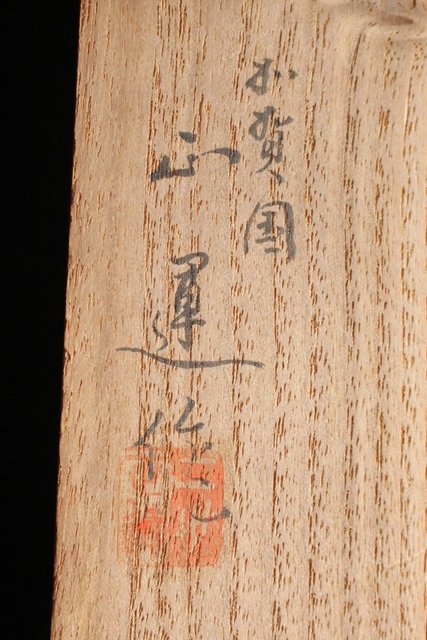 加賀国
正運作之